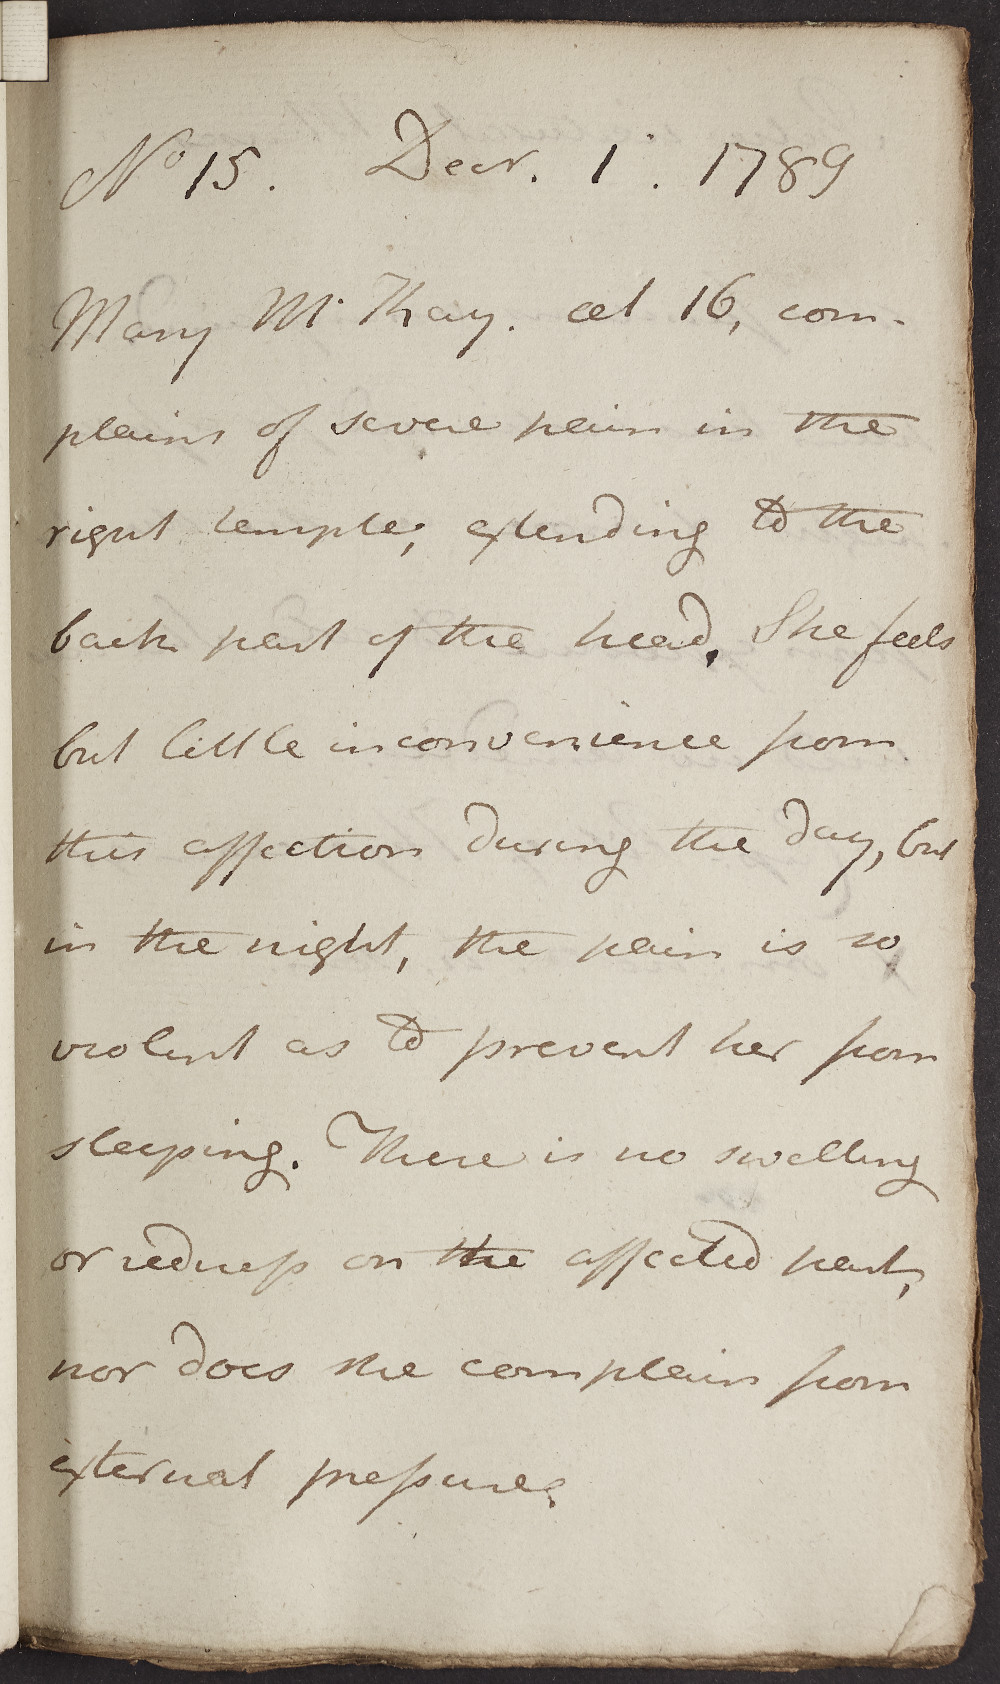 No 15. Decr. 1. 1789
Mary McKay. aet 16, com-
plains of severe pain in the
right temple, extending to the
back part of the head. She feels
but little inconvenience from
this affection during the day, but
in the night, the pain is so
violent as to prevent her from
sleeping. There is no swelling
or redness on the affected part,
nor does she complain from
external pressure.